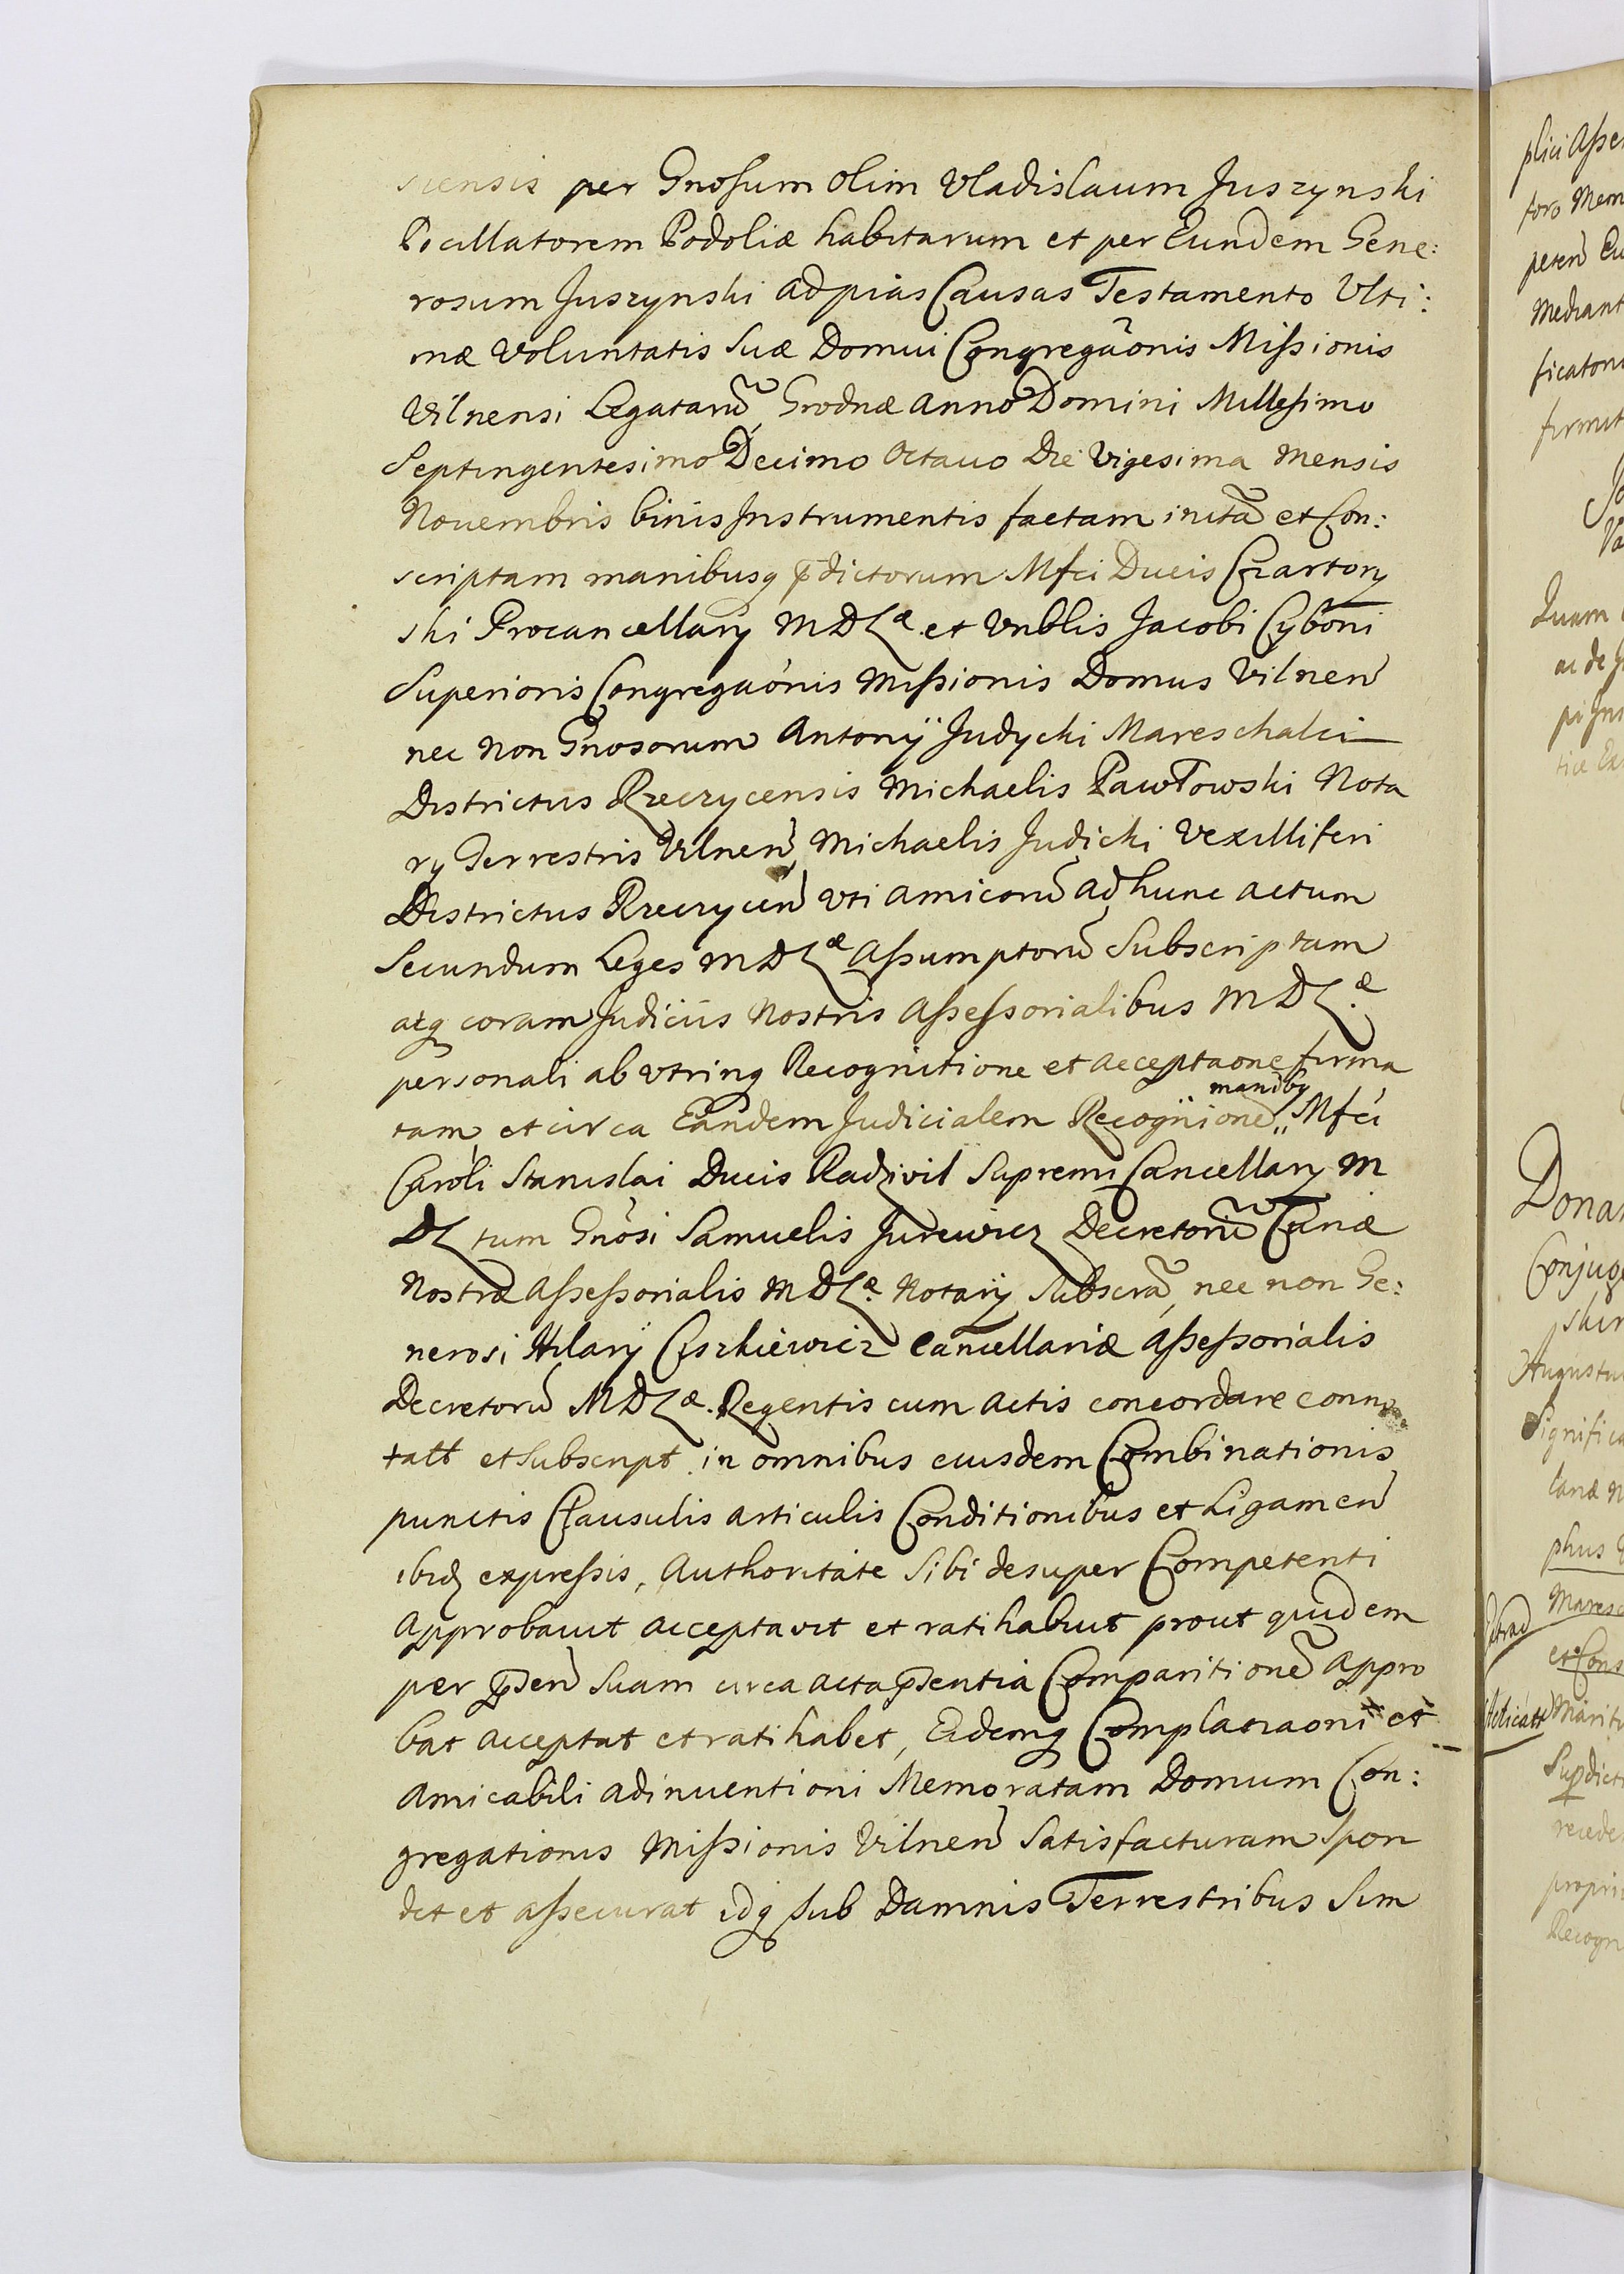 siensis per Gnosum olim Vladislaum Juszynski
Pocillatorem Podoliæ habitarum et per Eundem Gene:
rosum Juszynski ad pias Causas Testamento Ulti:
mæ Voluntatis Suæ Domui Congregaõnis Missionis
Vilnensi Legatarũ, Grodnæ Anno Domini Millesimo
Septingentesimo Decimo Octauo Die Vigesima Mensis
Nouembris binis Instrumentis factam initã et Con:
scriptam manibusq p̃dictorum Mfci Ducis Czartory
ski Procancellarÿ MDLæ. et Vnblis Jacobi Cyboni
Superioris Congregaõnis Missionis Domus Vilnen̄
nec non Gnosorum Antonÿ Judycki Mareschalci
Districtus Rzeczycensis Michaelis Pawłowski Nota
rÿ Terrestris Vilnen̄, Michaelis Judicki Vexilliferi
Districtus Rzeczycen̄ vti amicorũ ad hunc actum
Secundum Leges MDLæ Assumptorũ Subscriptam
atq coram Judiciis Nostris Assessorialibus MDL.æ
personali ab vtrinq Recognitione et acceptaone firma
tam, et circa Eandem Judicialem Recognionē„ manibq Mfci
Caroli Stanislai Ducis Radzivil Supremi Cancellarÿ M
DL tum Gnõsi Samuelis Jurewicz Decretorũ Curiæ
Nostræ Assessorialis MDLæ. Notarÿ Subscrã, nec non Ge:
nerosi Hilarÿ Ciszkiewicz Cancellariæ Assessorialis
Decretorũ MDLæ. Regentis cum Actis concordare conno
tatt et Subscript. in omnibus eiusdem Combinationis
punctis Clausulis articulis Conditionibus et Ligamen̄
ibidꝫ expressis, Authoritate Sibi desuper Competenti
Approbauit acceptavit et ratihabuit prout quidem
per p̃sen̄ Suam circa acta p̃sentia Comparitionē Appro
bat acceptat et ratihabet, Eidemq Complanaoni et
Amicabili adinuentioni Memoratam Domum Con:
gregationis Missionis Vilnen̄ Satisfacturam Spon
det et assecurat idq sub Damnis Terrestribus Sim
plici Asse
toro Mem
peten̄
Mediant
ficatori
firmit
Quam
ac de
Donat
Conjuge
Augustu
Significa
phus
Maresc
et Cons
Marit
Supdict
recede
propri
Recogn